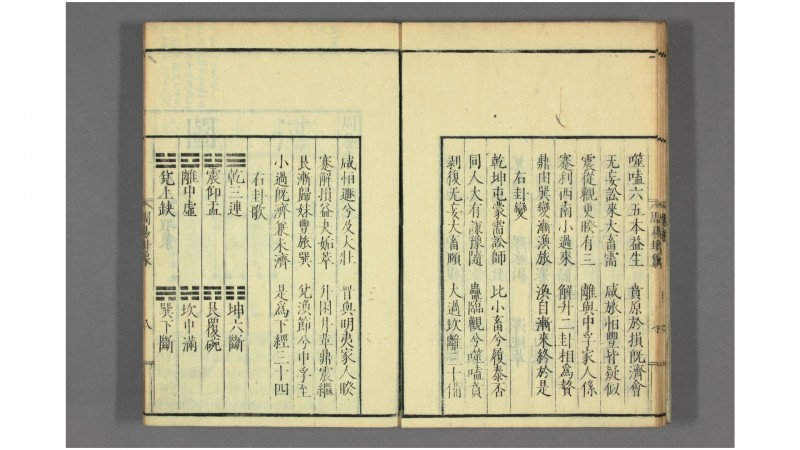 噬嗑六五本益生　賁原於損旣濟會
无妄訟來大畜需　咸旅恒豐皆疑似
震從觀更睽有三　離與中孚家人係
蹇利西南小過來　解升二卦相爲贅
鼎由巽變漸渙旅　渙自漸來終於是
右卦變
乾坤屯蒙需訟師　比小畜兮履泰否
同人大有謙豫隨　蠱臨觀兮噬嗑賁
剥復无妄大畜頤　大過坎離三十備
咸恒遯兮及大壯　晋與明夷家人睽
蹇解損益夬姤萃　升困井革鼎震繼
艮漸歸妹豐旅巽　兌渙節兮中孚至
小過旣濟兼未濟　是爲下經三十四
右卦歌
☰乾三連　☷坤六斷
☳震仰盂　☶艮覆碗
☲離中虛　☵坎中滿
☱兌上缺　☴巽下斷
八